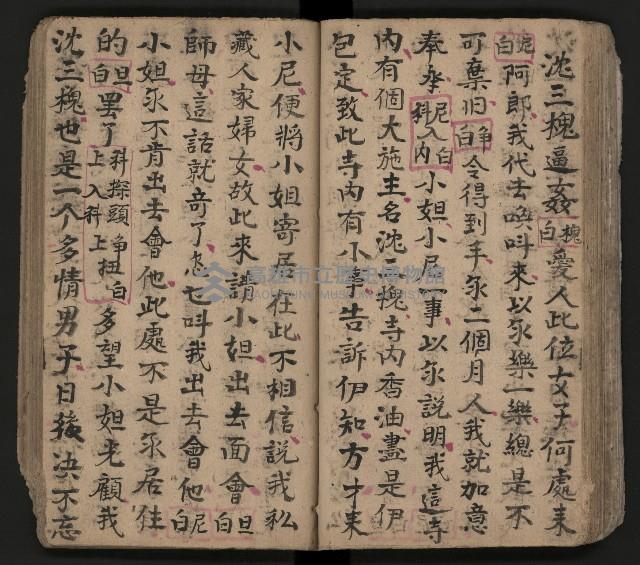 沈三槐逼姦 槐白 愛人此位女子何處來
尼白 阿郎我代去喚叫來以尔樂一樂總是不
可棄旧 争白 令得到手尔二個月人我就加意
奉承 尼白 科入内 小姐小尼一事以尔説明我這寺
内有個大施主名沈三槐寺内香油盡是伊
包定致此寺内有小事告訴伊知方才来
小尼便將小姐寄居在此不相信説我私
藏人家婦女故此来請小姐出去面會 旦白
師母這話就奇了怎乜叫我出去會他 尼白
小姐尔不肯出去會他此處不是尔居住
的 旦白 罷了 科探頭争扭白 上入科上 多望小姐光顧我
沈三槐也是一个多情男子日後決不忘
高雄市立歷史博物館
KAOHSIUNG MUSEUM OF HISTORY